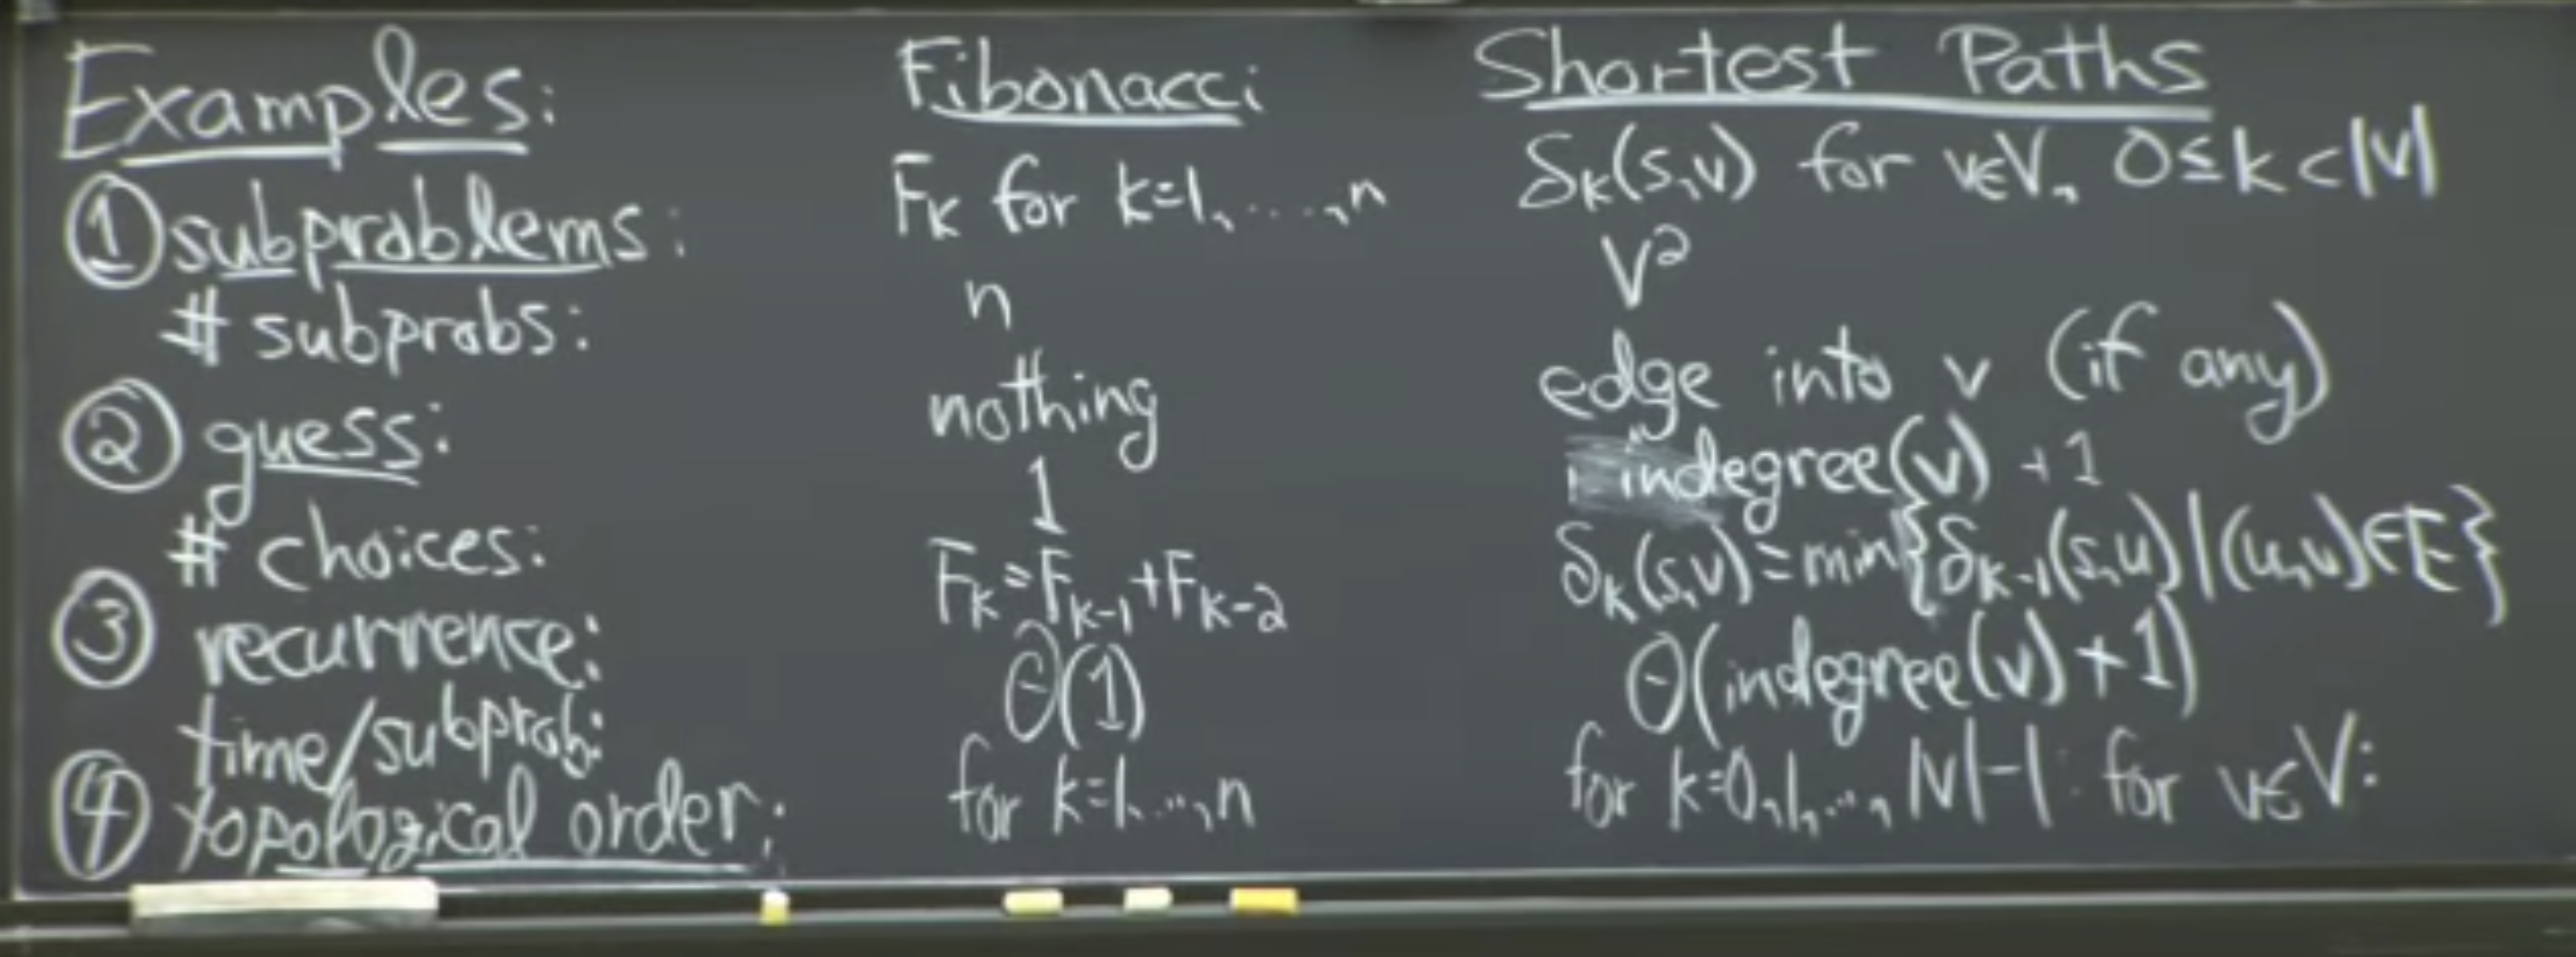 Examples: Fibonacci Shortest Paths
① subproblems: Fₖ for k=1,...,n δₖ(s,v) for v∈V, 0≤k<|V|
# subprobs: n V²
② guess: nothing edge into v (if any)
# choices: 1 indegree(v) +1
③ recurrence: Fₖ=Fₖ₋₁+Fₖ₋₂ δₖ(s,v)=min{δₖ₋₁(s,u)|(u,v)∈E}
time/subprob: Θ(1) Θ(indegree(v)+1)
④ topological order: for k=1,...,n for k=0,1,...,|V|-1: for v∈V: